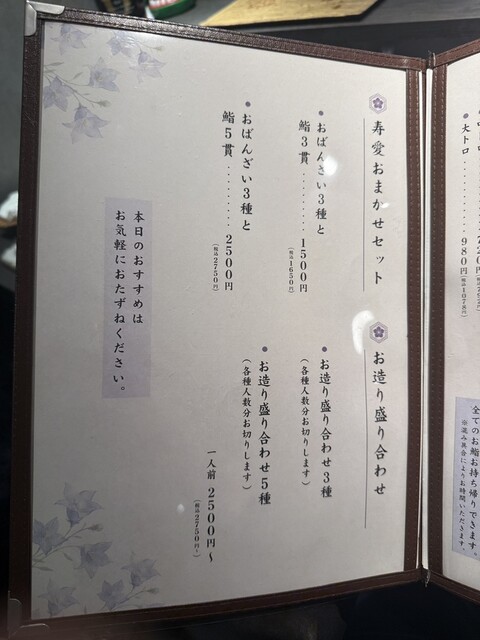 大トロ・・・・・・・・・980円
(税込1078円)
全てのお鮨お持ち帰りできます。
※混み具合によりお時間いただきます。
寿愛おまかせセット
おばんざい3種と
鮨3貫・・・・・・・・・1500円
(税込1650円)
おばんざい3種と
鮨5貫・・・・・・・・・2500円
(税込2750円)
お造り盛り合わせ
お造り盛り合わせ3種
(各種人数分お切りします)
お造り盛り合わせ5種
(各種人数分お切りします)
一人前 2500円〜
(税込2750円〜)
本日のおすすめは
お気軽におたずねください。